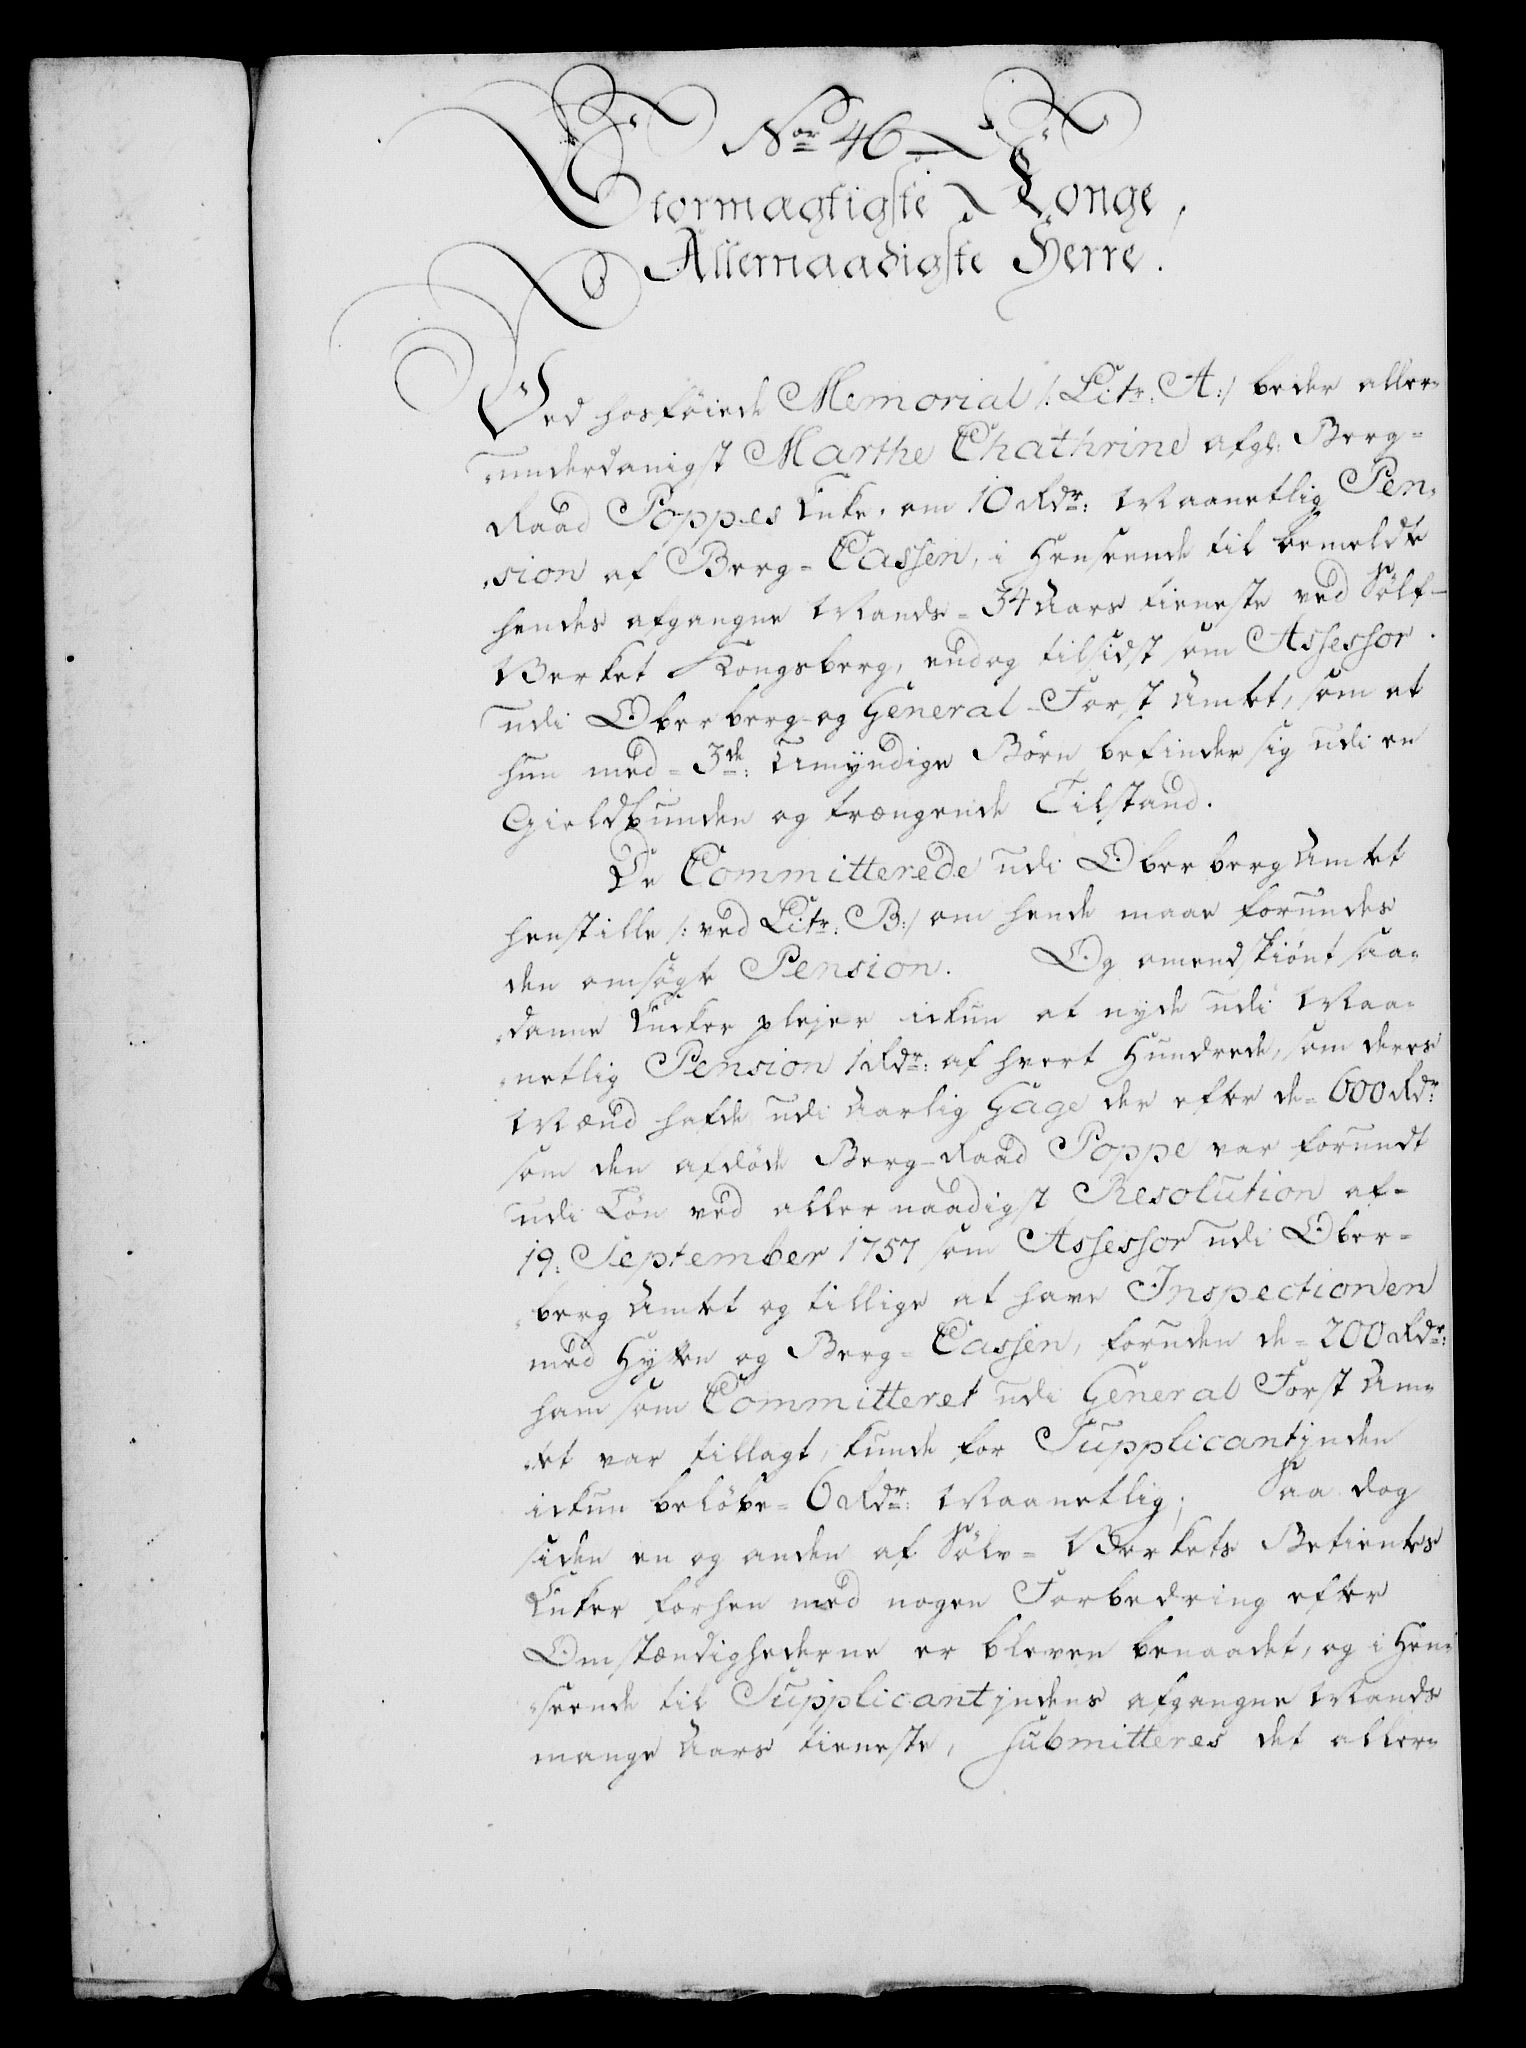 Nor 46
Stormægtigste Konge,
Allernaadigste Herre.
Ved hosföiede Memorial /: Litr: A:/ beder aller=
=underdanigst Marthe Chathrine afgl: Berg=
Raad Poppes Enke, om 10 Rdr: Maanetlig Pen=
=sion af Berg=Cassen, i Henseende til bemeldte
hendes afgangne Mands=34 Aars tieneste ved Sölf=
Verket Kongsberg, endog tilsidst som Assessor
udi Oberberg- og General-Forst Amtet, som at
hun med=3de: Umÿndige Börn befinder sig udi en
Gieldbunden og trængende Tilstand.
De Committerede udi Oberberg Amtet
henstille /: ved Litr: B:/ om hende maae forundes
den omsögte Pension. Og omendskiönt saa=
=danne Encker plejer ickun at nyde udi Maa=
=netlig Pension 1 Rdr: af hvert Hundrede, som deres
Mænd hafde udi Aarlig Gage der efter de=600 Rdr:
som den afdöde Berg-Raad Poppe var forundt
udi Lön ved allernaadigst Resolution af=
19: September 1757 som Assessor udi Ober=
=berg Amtet og tillige at have Inspectionen
med Hytten og Berg=Cassen, foruden de=200 Rdr:
ham som Committeret udi General Forst Am=
=tet var tillagt, kunde for Supplicantinden
ickun belöbe=6 Rdr: Maanetlig; Saa dog
siden en og anden af Sölv=Verkets Betientes
Enker forhen med nogen Forbedring efter
Omstændighederne er bleven benaadet, og i Hen=
=seende til Supplicantindens afgangne Mands
mange Aars tieneste, submitteres det aller=